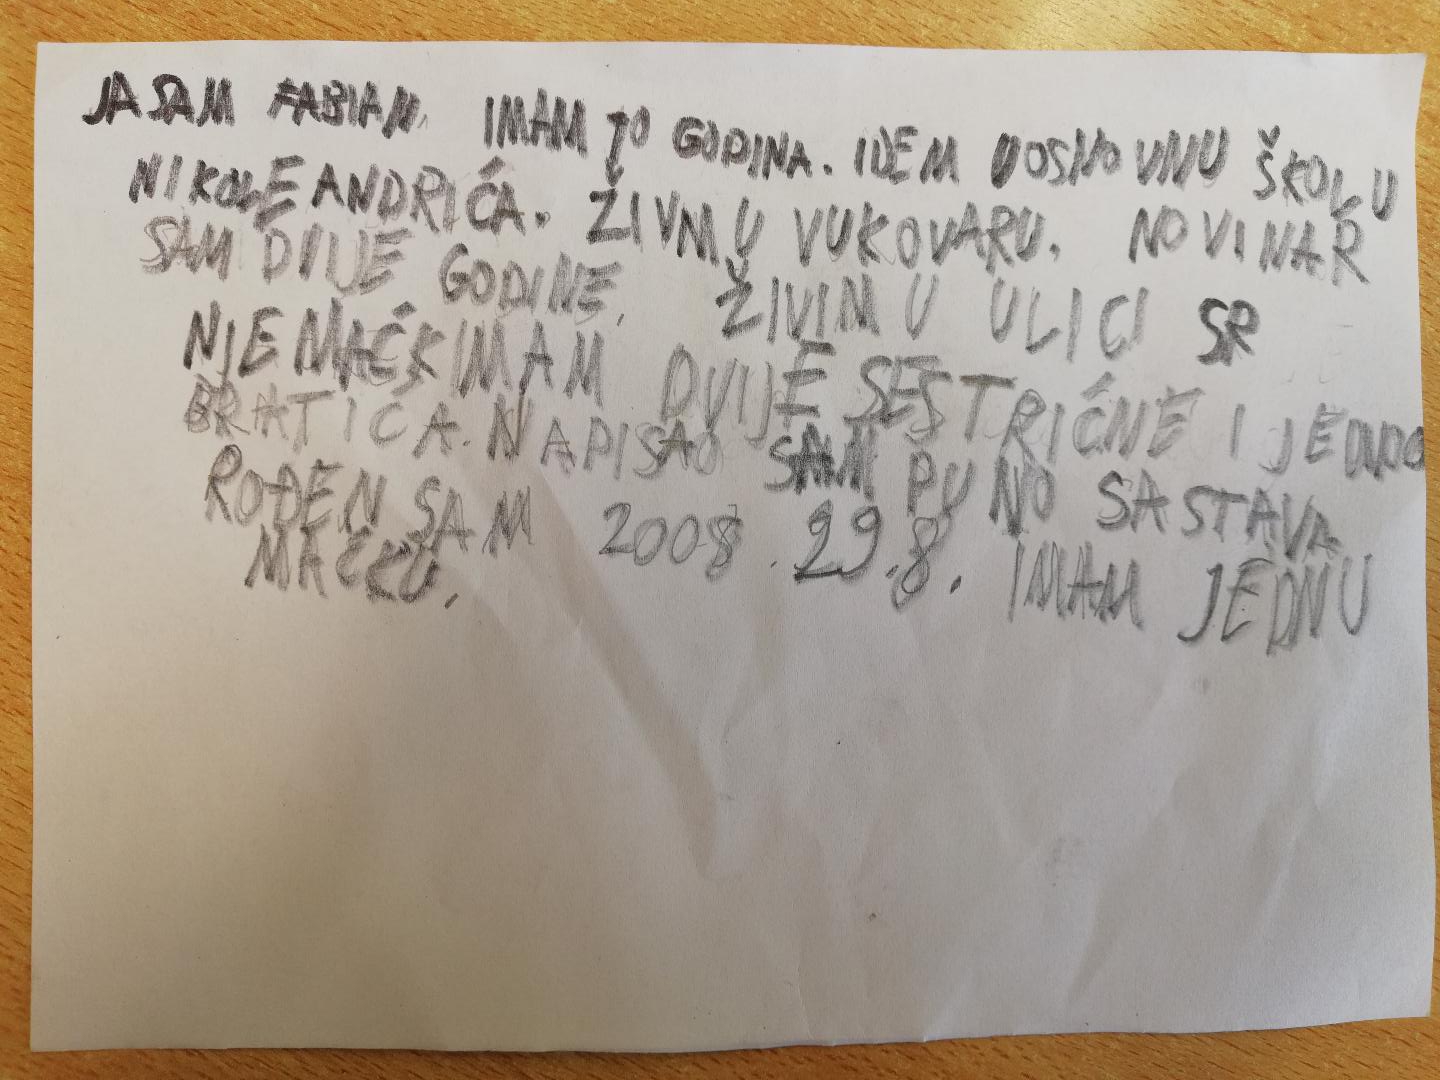 JA SAM FABIAN. IMAM 10 GODINA. IDEM U OSNOVNU ŠKOLU
NIKOLE ANDRIĆA. ŽIVM U VUKOVARU. NOVINAR
SAM DIJE GODINE. ŽIVIM U ULICI SR
NJEMAČK IMAM DVIJE SESTRIČNE I JEDNOG
BRATIĆA. NAPISAO SAM PUNO SASTAVA
ROĐEN SAM 2008. 29.8. IMAM JEDNU
MAČKU.